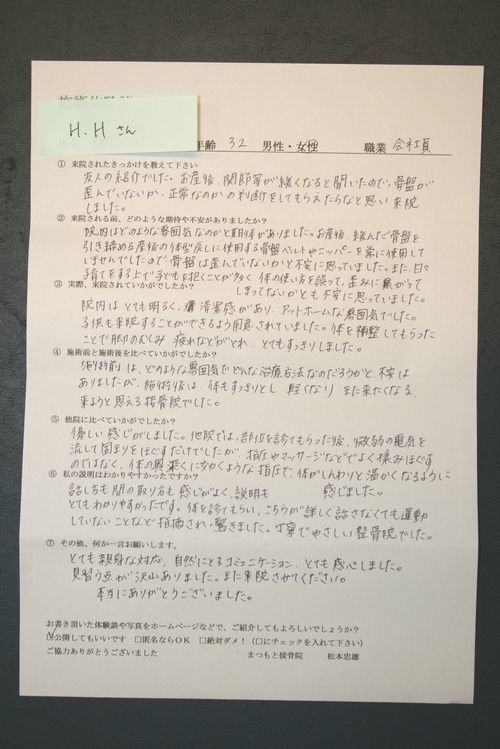 H.H さん
年齢 32 男性・女性 職業 会社員
① 来院されたきっかけを教えて下さい
友人の紹介でした。お産後、関節等が緩くなると聞いたので、骨盤が
歪んでいないか、正常なのかの判断をしてもらえたらなと思い来院
しました。
② 来院される前、どのような期待や不安がありましたか？
院内はどのような雰囲気なのかと期待がありました。お産後、緩んだ骨盤を
引き締める産後の体型戻しに使用する骨盤ベルトやニッパーを常に使用して
いませんでしたので骨盤は歪んでいないかと不安に思っていました。また、日々
子育てをする上で子どもを抱くことが多く、体の使い方を誤って、歪みに繋がって
しまってないかとも不安に思っていました。
③ 実際、来院されていかがでしたか？
院内はとても明るく、清潔感があり、アットホームな雰囲気でした。
子供も来院することができるよう用意されていました。体を補整してもらった
ことで脚のむくみ、疲れなどがとれ、とてもすっきりしました。
④ 施術前と施術後を比べていかがでしたか？
施術前は、どのような雰囲気でどんな治療方法なのだろうかと不安は
ありましたが、施術後は、体もすっきりとし、軽くなり、また来たくなる、
来ようと思える接骨院でした。
⑤ 他院に比べていかがでしたか？
優しい感じがしました。他院では、部位を診てもらった後、微弱の電気を
流して固まりをほぐすだけでしたが、指圧やマッサージなどでよく揉みほぐす
のではなく、体の奥深くに効くような指圧で、体がじんわりと温かくなるように
感じました。
⑥ 私の説明はわかりやすかったですか？
話し方も間の取り方も感じがよく、説明も
とてもわかりやすかったです。体を診てもらい、こちらが詳しく話さなくても運動
していないことなど指摘され、驚きました。丁寧でやさしい整骨院でした。
⑦ その他、何か一言お願いします。
とても親身な対応、自然にとるコミュニケーション、とても感心しました。
見習う点が沢山ありました。また来院させてください。
本当にありがとうございました。
お書き頂いた体験談や写真をホームページなどで、ご紹介してもよろしいでしょうか？
☑公開してもいいです □匿名ならOK □絶対ダメ！（□にチェックを入れて下さい）
ご協力ありがとうございました まつもと接骨院 松本忠雄